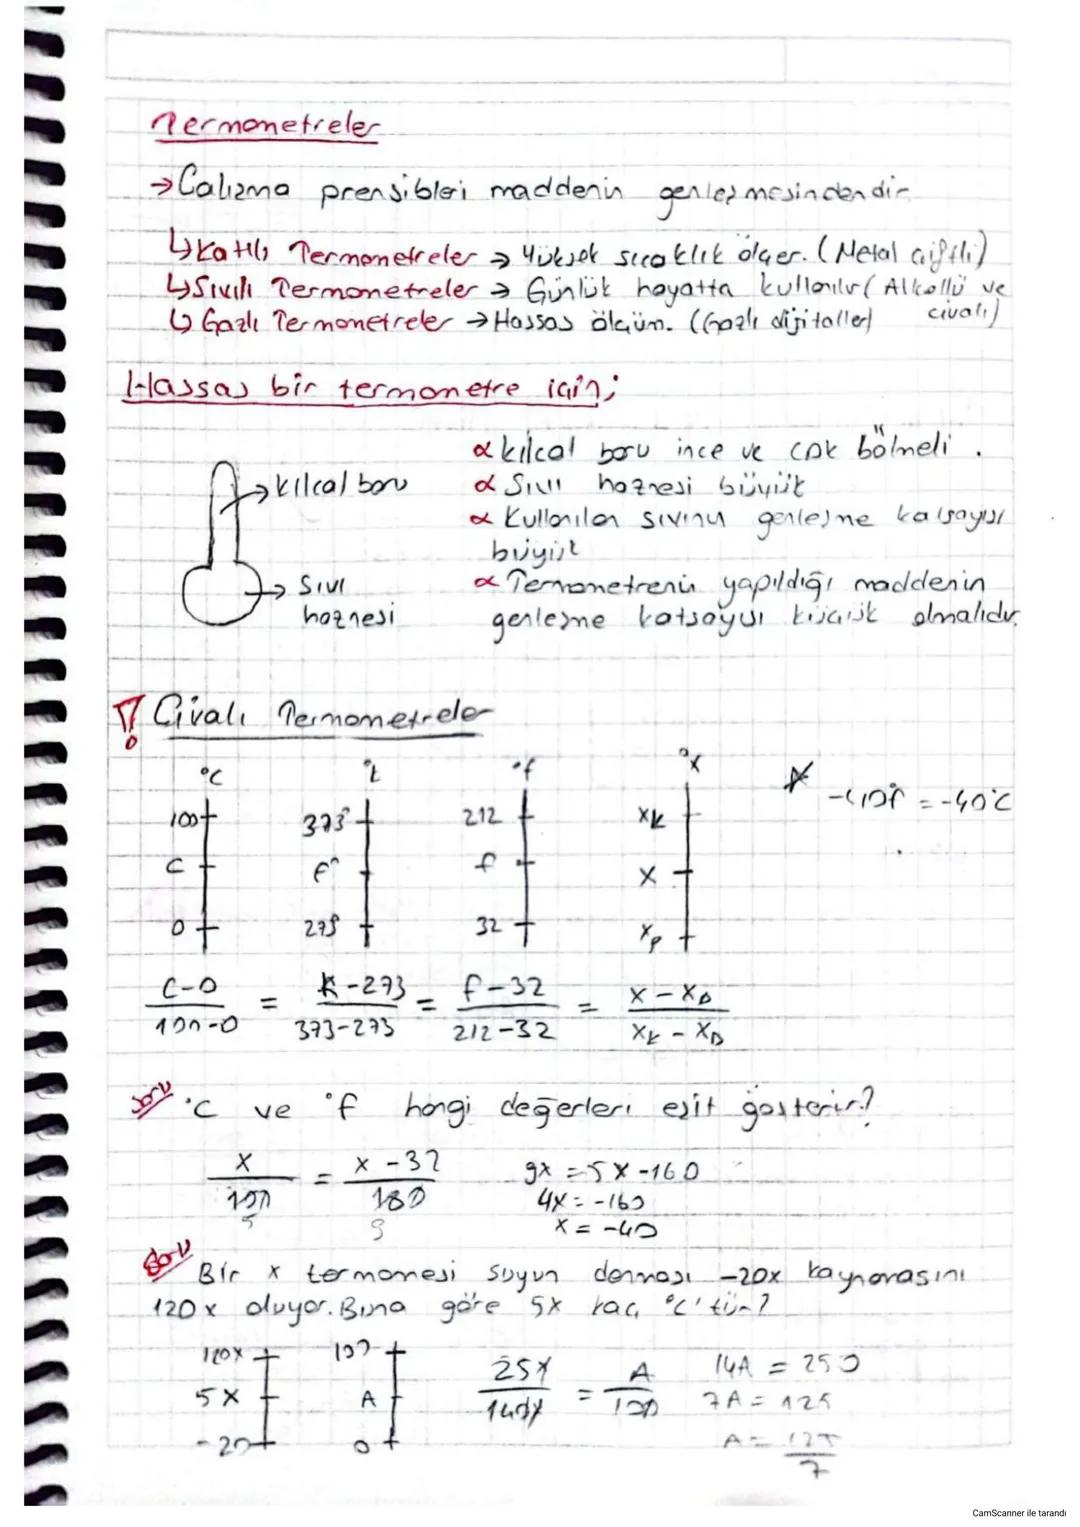 Termometreler
→ Calışma prensibleri maddenin genleşmesindendir
↳ Katılı Termometreler → Yüksek sıcaklık ölçer. (Metal çiftli)
↳ Sıvılı Termometreler → Günlük hayatta kullanılır (Alkollü ve civalı)
↳ Gazlı Termometreler → Hassas ölçüm. (Gazlı dijitaller)
Hassas bir termometre için;
→ kılcal boru
→ Sıvı haznesi
α kılcal boru ince ve çok bölmeli.
α Sıvı haznesi büyük
α Kullanılan sıvının genleşme katsayısı
büyük
α Termometrenin yapıldığı maddenin
genleşme katsayısı küçük olmalıdır.
Civalı Termometreler
°C °K °f °X
100 373 212 XK
C f X
0 273 32 Xp
* -40°f = -40°C
C-0 / 100-0 = K-273 / 373-273 = f-32 / 212-32 = X-XD / XK-XD
Soru °C ve °f hangi değerleri eşit gösterir?
X / 100 = X-32 / 180
5 9
9x = 5x-160
4x = -160
x = -40
Soru Bir x termomesi suyun donması -20x kaynamasını
120x oluyor. Buna göre 5x kaç °C'tür?
120x 100
5x A
-20 0
25x / 140x = A / 100
14A = 250
7A = 125
A = 125 / 7
CamScanner ile tarandı